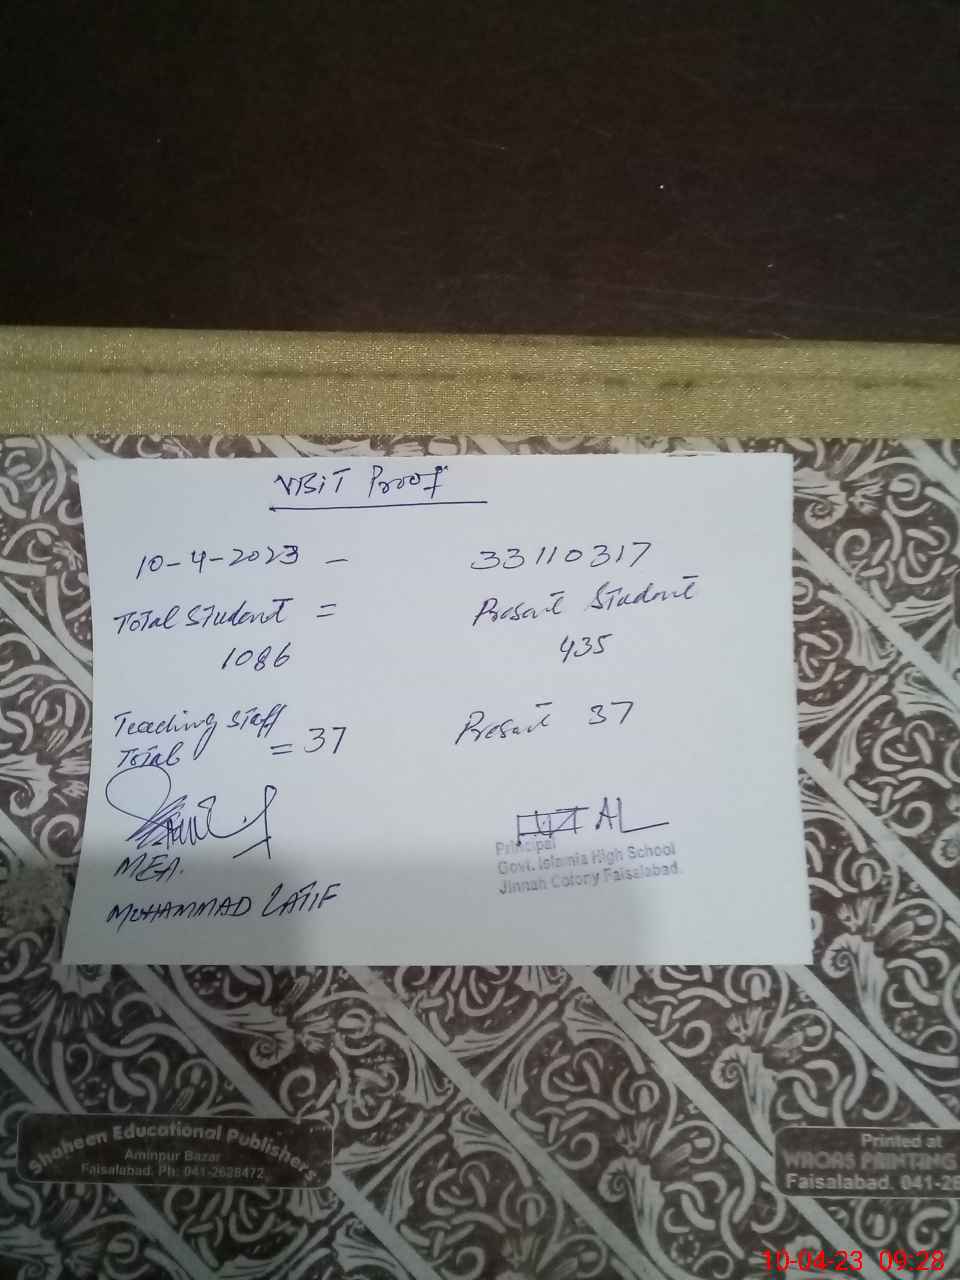 VBiT Proof
10-4-2023 - 33110317
Total Student = Present Student
1086 435
Teaching Staff
Total = 37 Present 37
MEA.
MUHAMMAD LATIF
Principal
Govt. Islamia High School
Jinnah Colony Faisalabad.
Shaheen Educational Publishers
Aminpur Bazar
Faisalabad. Ph: 041-2628472
Printed at
WAQAS PRINTING
Faisalabad. 041-26
10-04-23 09:28